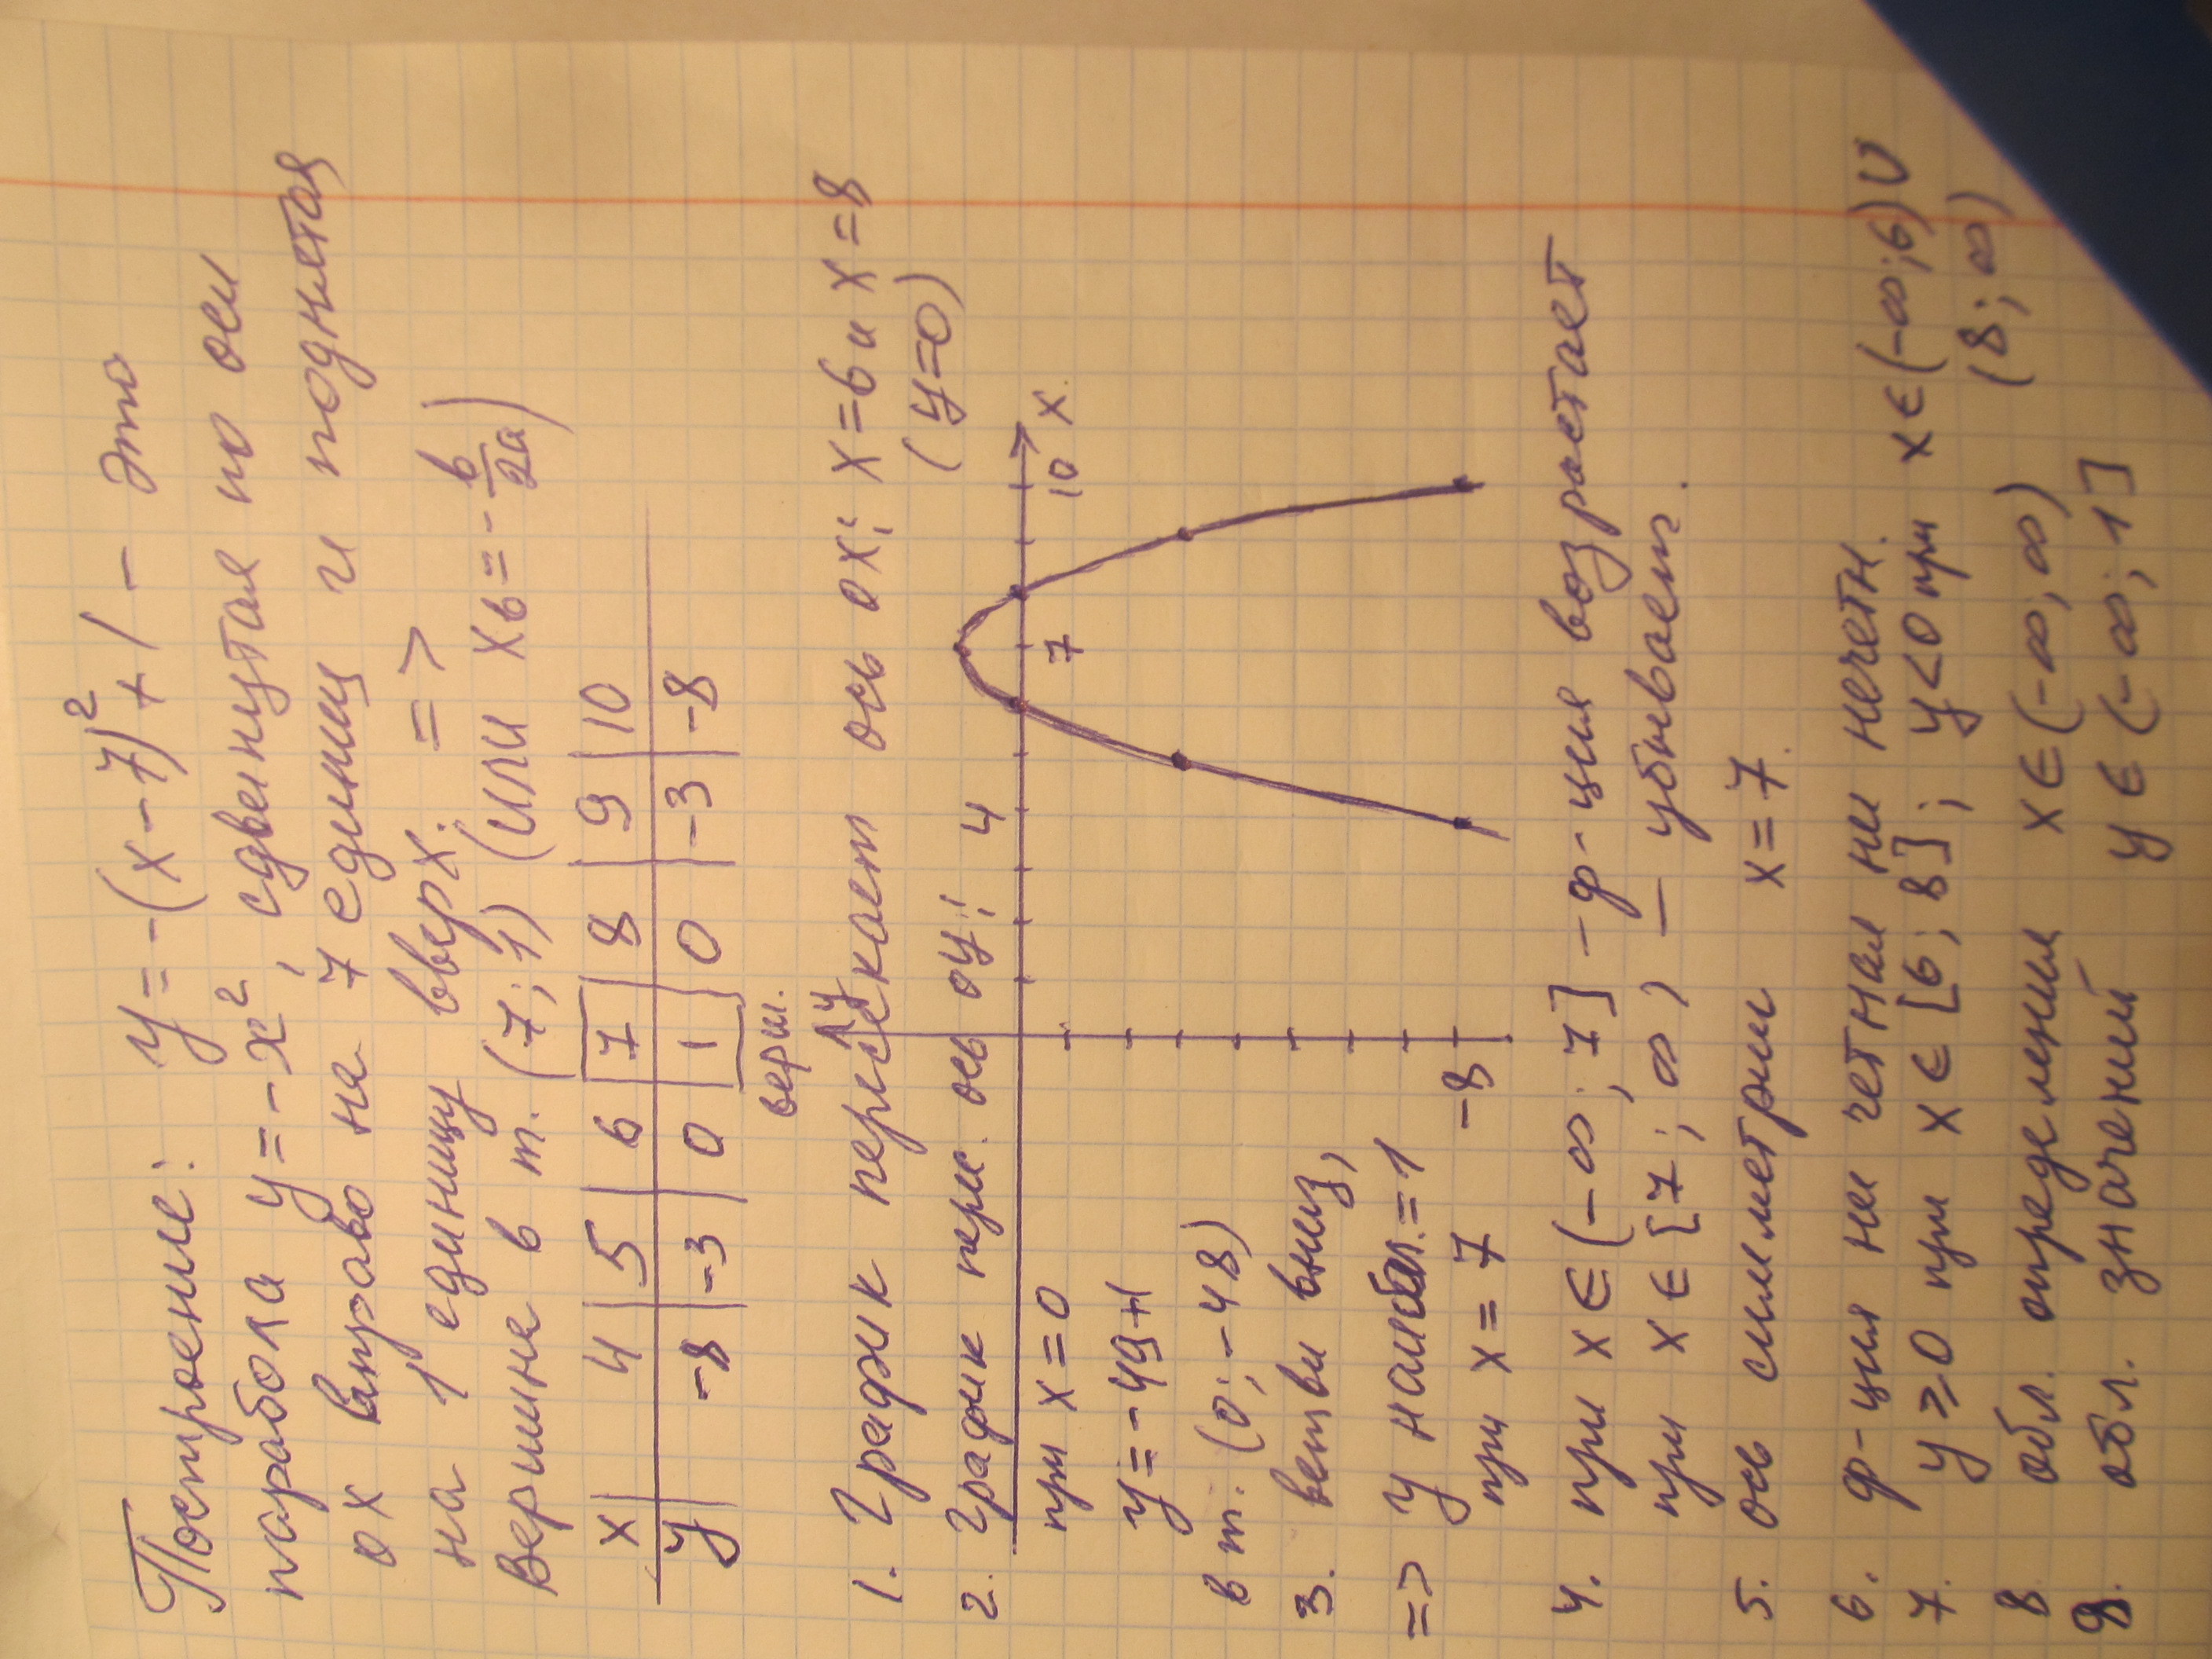 Построение: y = -(x-7)² + 1 - это
парабола y = -x², сдвинутая по оси
ох вправо на 7 единиц и поднятая
на 1 единицу вверх. =>
Вершина в т. (7; 1) (или xв = -b/2a)
x | 4 | 5 | 6 | 7 | 8 | 9 | 10
y | -8 | -3 | 0 | 1 | 0 | -3 | -8
верш.
1. График пересекает ось ох: x=6 и x=8
(y=0)
2. График перес. ось оу:
при x=0
y = -49+1
в т. (0; -48)
3. ветви вниз,
=> y наиб.=1
при x=7
y
4
7
10
x
-8
4. при x ∈ (-∞; 7] - ф-ция возрастает
при x ∈ [7; ∞) - убывает.
5. ось симметрии x=7.
6. ф-ция ни четная ни нечетн.
7. y ≥ 0 при x ∈ [6; 8]; y<0 при x ∈ (-∞; 6) ∪
(8; ∞)
8 обл. определения x ∈ (-∞; ∞)
9. обл. значений y ∈ (-∞; 1]